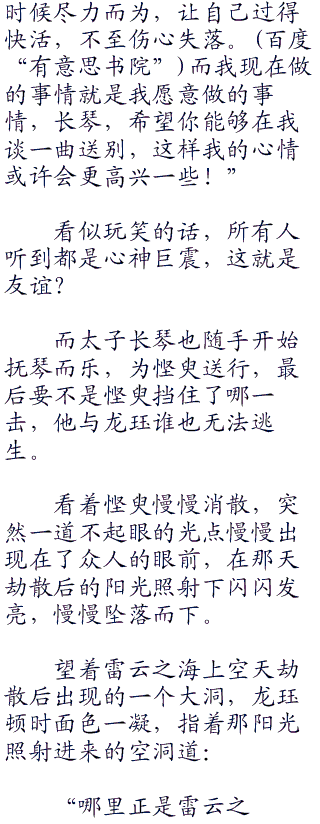 时候尽力而为，让自己过得
快活，不至伤心失落。(百度
“有意思书院”)而我现在做
的事情就是我愿意做的事
情，长琴，希望你能够在我
谈一曲送别，这样我的心情
或许会更高兴一些！”
看似玩笑的话，所有人
听到都是心神巨震，这就是
友谊？
而太子长琴也随手开始
抚琴而乐，为悭臾送行，最
后要不是悭臾挡住了哪一
击，他与龙珏谁也无法逃
生。
看着悭臾慢慢消散，突
然一道不起眼的光点慢慢出
现在了众人的眼前，在那天
劫散后的阳光照射下闪闪发
亮，慢慢坠落而下。
望着雷云之海上空天劫
散后出现的一个大洞，龙珏
顿时面色一凝，指着那阳光
照射进来的空洞道：
“哪里正是雷云之